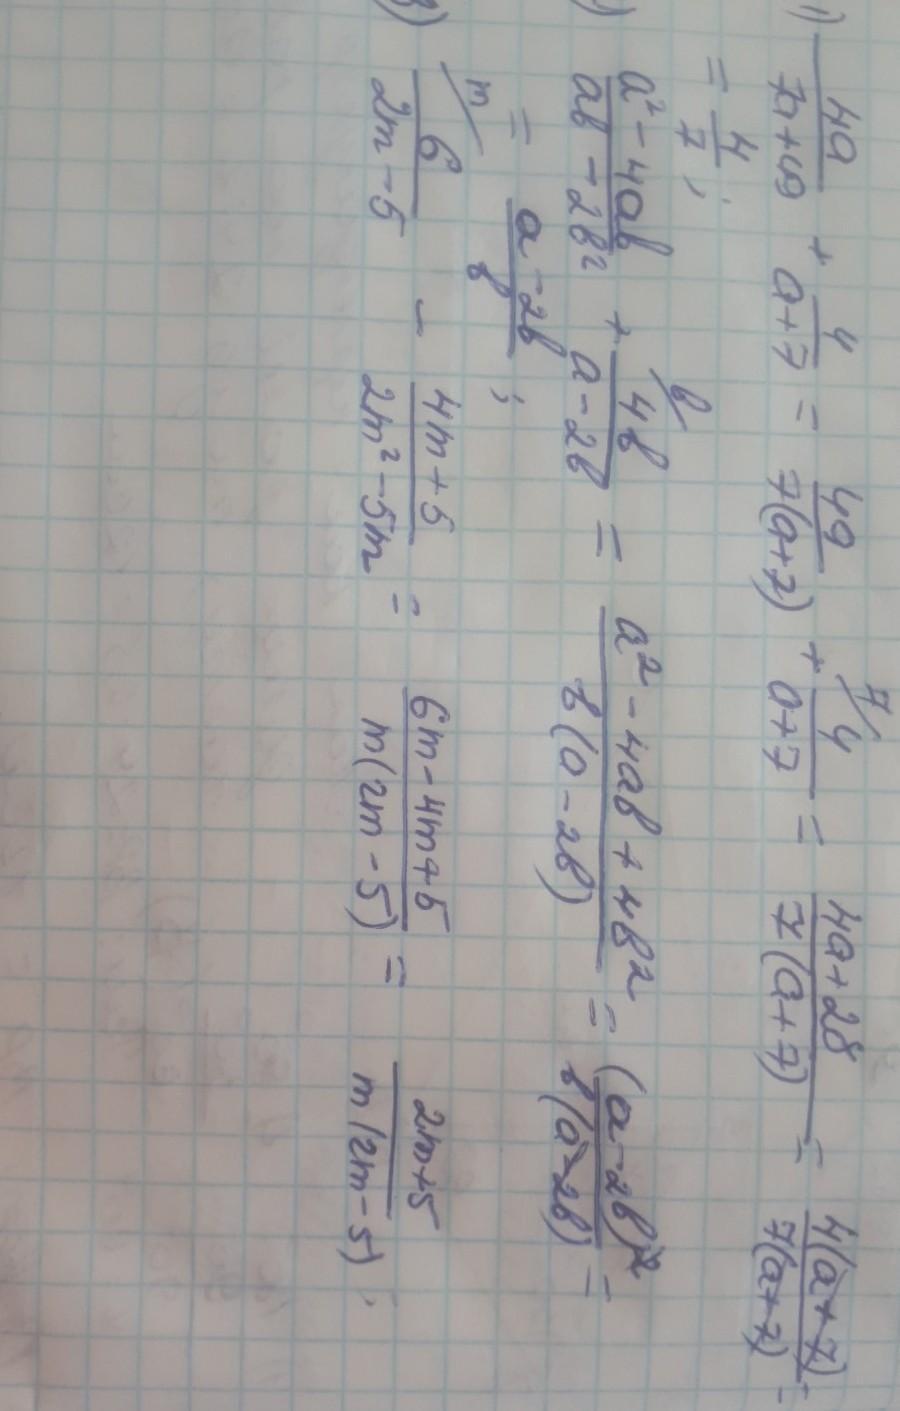 1) 4a/(7a+49) + 4/(a+7) = 4a/(7(a+7)) + 7/ 4/(a+7) = (4a+28)/(7(a+7)) = 4(a+7)/(7(a+7)) =
= 4/7 ;
) (a² - 4ab)/(ab - 2b²) + b/ 4b/(a-2b) = (a² - 4ab + 4b²)/(b(a-2b)) = (a-2b)²/(b(a-2b)) =
= (a-2b)/b ;
3) m/ 6/(2m-5) - (4m+5)/(2m²-5m) = (6m-4m+5)/(m(2m-5)) = (2m+5)/(m(2m-5)) ;